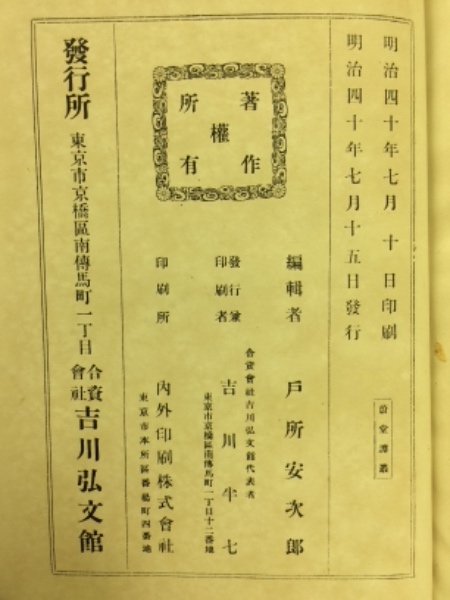 明治四十年七月十日印刷
明治四十年七月十五日發行
著作
權
所有
編輯者 戶所安次郎
發行兼
印刷者
合資會社吉川弘文館代表者
吉川半七
東京市京橋區南傳馬町一丁目十二番地
印刷所
內外印刷株式會社
東京市本所區番場町四番地
發行所 東京市京橋區南傳馬町一丁目
合資
會社
吉川弘文館